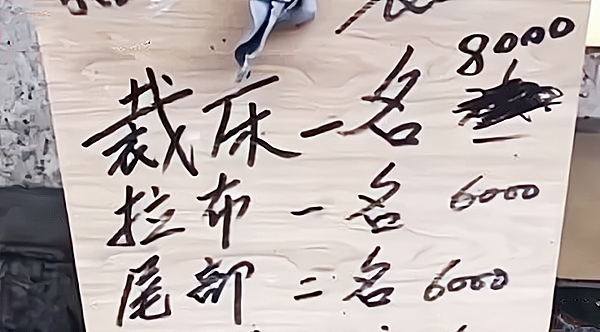 裁床一名 8000
拉布一名 6000
尾部二名 6000